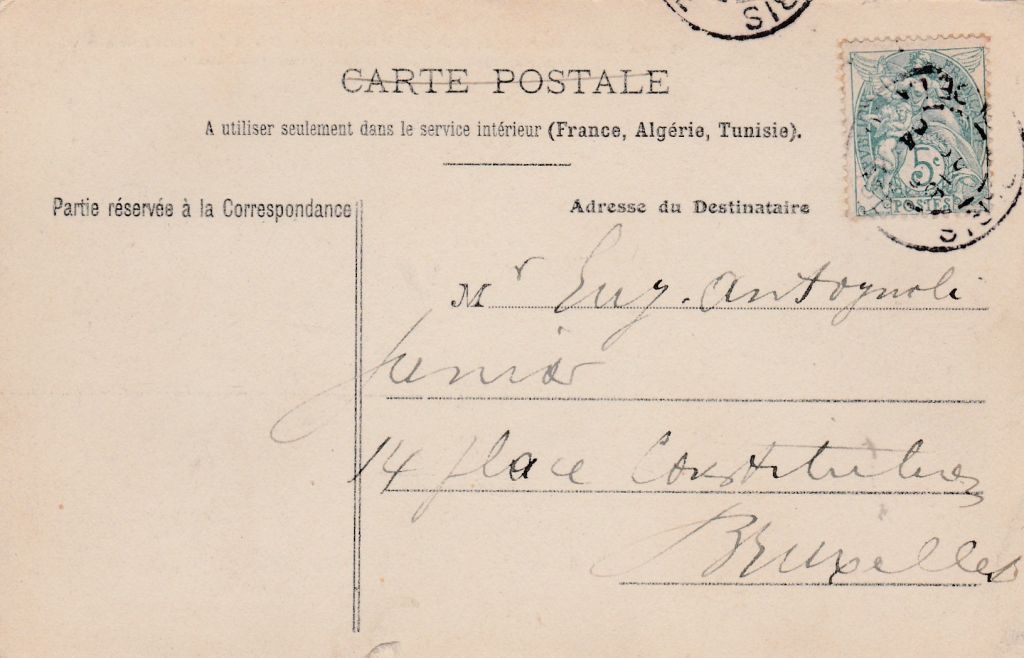 CARTE POSTALE
A utiliser seulement dans le service intérieur (France, Algérie, Tunisie).
Partie réservée à la Correspondance
Adresse du Destinataire
5c
POSTES
PARIS
Mr Eug. Antognoli
Junior
14 place Constitution
Bruxelles